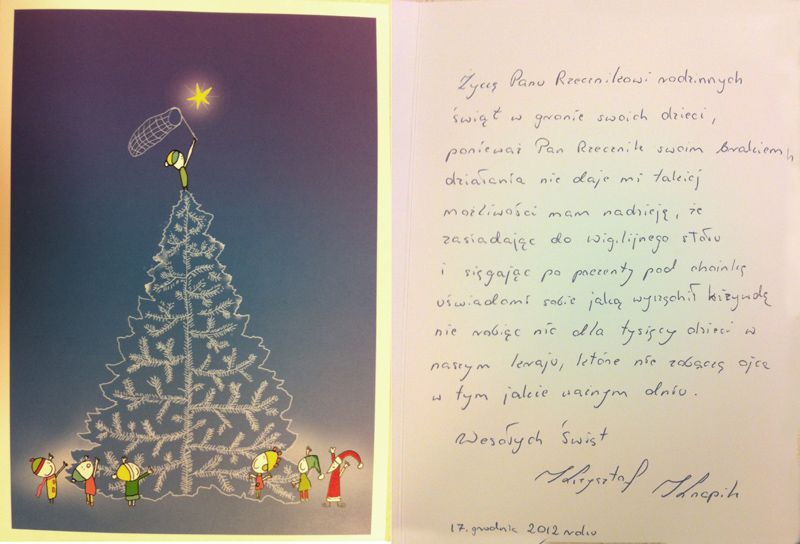 Życzę Panu Rzecznikowi rodzinnych
świąt w gronie swoich dzieci,
ponieważ Pan Rzecznik swoim brakiem
działania nie daje mi takiej
możliwości mam nadzieję, że
zasiadając do wigilijnego stołu
i sięgając po prezenty pod choinkę
uświadomi sobie jaką wyrządził krzywdę
nie robiąc nic dla tysięcy dzieci w
naszym kraju, które nie zobaczą ojca
w tym jakże ważnym dniu.
Wesołych Świąt
Krzysztof Knapik
17. grudnia 2012 roku